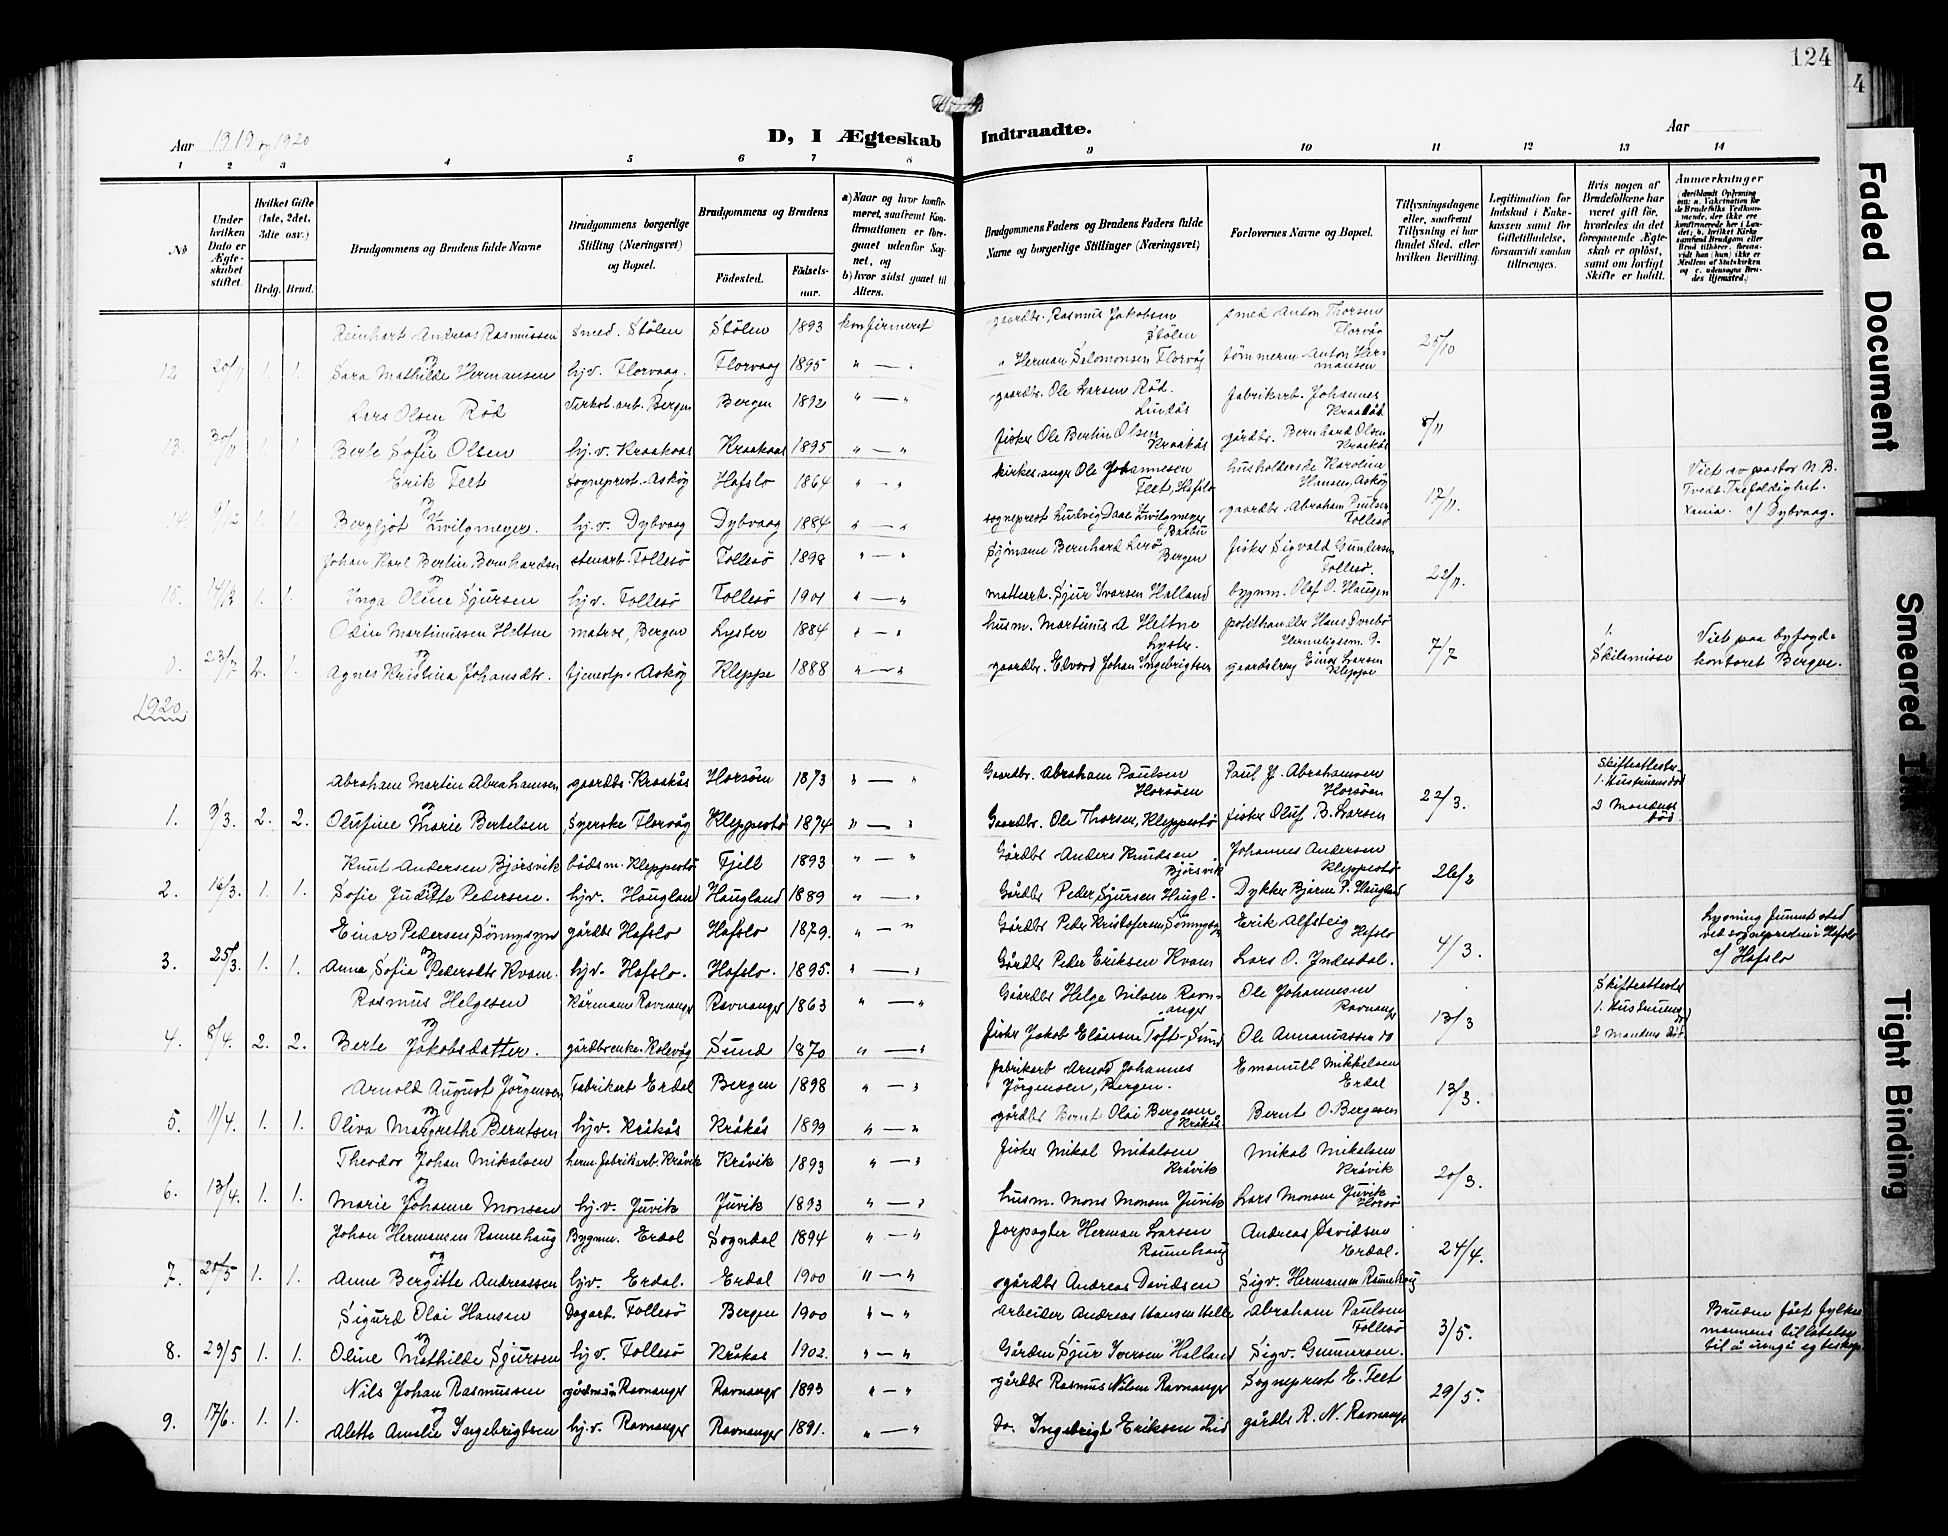 124
4
Aar 1919 og 1920
D, I Ægteskab Indtraadte.
Aar
1 2 3 4 5 6 7 8 9 10 11 12 13 14
No
Under hvilken Dato er Ægteskabet stiftet.
Hvilket Gifte (1ste, 2det, 3die osv.)
Brdg. Brud.
Brudgommens og Brudens fulde Navne
Brudgommens borgerlige Stilling (Næringsvei) og Bopæl.
Brudgommens og Brudens
Fødested. Fødselsaar.
a) Naar og hvor konfirmeret, saafremt Konfirmationen er foregaaet udenfor Sognet, og
b) hvor sidst gaaet til Alters.
Brudgommens Faders og Brudens Faders fulde Navne og borgerlige Stillinger (Næringsvei)
Forlovernes Navne og Bopæl.
Tillysningsdagene eller, saafremt Tillysning ei har fundet Sted, efter hvilken Bevilling.
Legitimation for Indskud i Enkekassen samt for Giftetilladelse, forsaavidt saadan tiltrænges.
Hvis nogen af Brudefolkene har været gift før, hvorledes da det foregaaende Ægteskab er opløst, samt om lovligt Skifte er holdt.
Anmærkninger
Reinhart Andreas Rasmussen smed. Stölen Stölen 1893 konfirmeret gaardbr. Rasmus Jakobsen Stölen smed Anton Thorsen Florvåg 25/10
12 20/11 1. 1. og Sara Mathilde Hermansen hjv. Florvaag. Florvaag 1895 " — " " Herman Salomonsen Florvåg tömmerm. Anton Hermansen
Lars Olsen Röd Verkst.arb. Bergen Bergen 1892 " — " gaardbr. Ole Larsen Röd. Lindås fabrikarb. Johannes Kraakås 8/11
13. 30/11 1. 1. og Berte Sofie Olsen hj.v. Kraakaas Kraakaas 1895 " — " fisker Ole Bertin Olsen Kraakås gårdbr. Bernhard Olsen Kraakås
Erik Feet Sogneprest. Asköy Hafslo 1864 " — " kirkesanger Ole Johannesen Feet, Hafslo husholderske Karoline Hansen, Asköy 17/11. Viet av pastor N. B. Tvedt. Trefoldighet. Xania. c/ Dybvaag.
14. 9/12 1. 1. og Bergljot Zwilgmeyer. hj.v. Dybvaag Dybvaag 1884 " — " sogneprest Ludvig Daae Zwilgmeyer Barbu gaardbr Abraham Paulsen Follesö
Johan Karl Bertin Bernhardsen stenarb. Follesö Follesö 1898 " — " Sjömann Bernhard Lerö Bergen fisker Sigvald Gundersen Follesö. 22/11.
15. 14/12 1. 1. og Inga Oline Sjursen hjv. Follesö Follesö 1901 " — " Sjur Ivarsen Halland bygnm. Olaf O. Haugen
Odin Martinussen Heltne matros, Bergen Lyster 1884 " — " husm. Martinus A Heltne Lyster. 7/7 1. Skilsmisse Viet paa byfogdkontoret Bergen.
23/7 2. 1. og Agnes Kristina Johansdtr. tjenestp. Asköy Kleppe 1888 " — " gaardbr. Edvard Johan Ingebrigtsen Einar Larsen Kleppe
1920
Abraham Martin Abrahamsen gaardbr. Kraakås Horsöen 1873 " — " Gaardbr. Abraham Paulsen Horsöen Paul J. Abrahamsen Horsöen 22/3. Skifteattester. 1. Hustruens död 2 Mandens död
1. 9/3. 2. 2. og Olufine Marie Bertelsen Syerske Florvåg Kleppestö 1874 " — " Gaardbr. Ole Thorsen, Kleppestö fisker Oluf B. Larsen
Knut Andersen Bjorsvik bådsm. Kleppestö Fjell 1893 " — " Gårdbr Anders Knudsen Bjorsvik Johannes Andersen Kleppestö 26/2
2. 16/3. 1. 1. og Sofie Juditte Pedersen. hjv. Haugland Haugland 1889 " — " Gårdbr Peder Sjursen Haugl. Dykker Bjarne P. Haugland
Einar Pedersen Sönnesyn gårdbr Hafslo Hafslo 1879. " — " Gårdbr Peder Kristofersen Sönnesyn Erik Alfsteig Hafslo 4/3. Lysning funnet sted ved sognepresten i Hafslo c/ Hafslo
3. 25/3. 1. 1. og Anna Sofia Pedersdtr Kvam. hjv. Hafslo. Hafslo. 1895. " — " Gårdbr Peder Eriksen Kvam Lars O. Indesdal.
Rasmus Helgesen Kårmann Ravnanger Ravnanger 1863 " — " Gaardbr Helge Nilsen Ravnanger Ole Johannesen Ravnanger 13/3 Skifteattester 1. Hustruens död 2 Mandens död.
4. 8/4. 2. 2. og Berte Jakobsdatter. gårdbrenke. Kolevåg Sund 1870 " — " fisker Jakob Elånsen Toft - Sund Ole Annaniassen do
Arnold August Jörgensen Fabrikarb Erdal Bergen 1898 " — " fabrikarb Arnold Johannes Jörgensen, Bergen. Emanuel Mikkelsen Erdal 13/3.
5. 11/4. 1. 1. og Oliva Margrethe Berntsen hjv. Kråkås Kråkås 1899 " — " gårdbr Bernt Olai Bergesen Kråkås Bernt O. Bergesen
Theodor Johan Mikalsen herm. fabrikarb. Kråvik Kråvik 1893 " — " fisker Mikal Mikalsen Kråvik Mikal Mikalsen Kråvik 20/3.
6. 13/4. 1. 1. og Marie Johanne Monsen hj.v. Juvik Juvik 1893 " — " husm. Mons Monsen Juvik Lars Monsen Juvik Horsö
Johan Hermansen Rannehaug Bygnm. Erdal Sogndal 1894 " — " forpagter Herman Larsen Rannehaug Andreas Davidsen Erdal. 24/4.
7. 25/5 1. 1. og Anne Bergitte Andreassen hjv. Erdal. Erdal 1900 " — " gårdbr Andreas Davidsen Sigv. Hermansen Rannehaug
Sigurd Olai Hansen Dagarb. Follesö Bergen 1900 " — " arbeider Andreas Hansen Helle Abraham Paulsen Follesö 3/5. Bruden fået fylkesmannens tillatelse til å inngå egteskap.
8. 29/5 1. 1. og Oline Mathilde Sjursen hj.v. Follesö Kråkås 1902. " — " Sjur Iversen Halland Sigv. Gunnarsen.
Nils Johan Rasmussen Ravnanger Ravnanger 1893 " — " gårdbr Rasmus Nilsen Ravnanger Sogneprest E. Feet 29/5.
9. 17/6. 1. 1. og Alette Amalie Ingebrigtsen hj.v. Ravnanger Ravnanger 1891. " — " do. Ingebrigt Eriksen gårdbr R. N. Ravnanger
Faded Document
Smeared Ink
Tight Binding